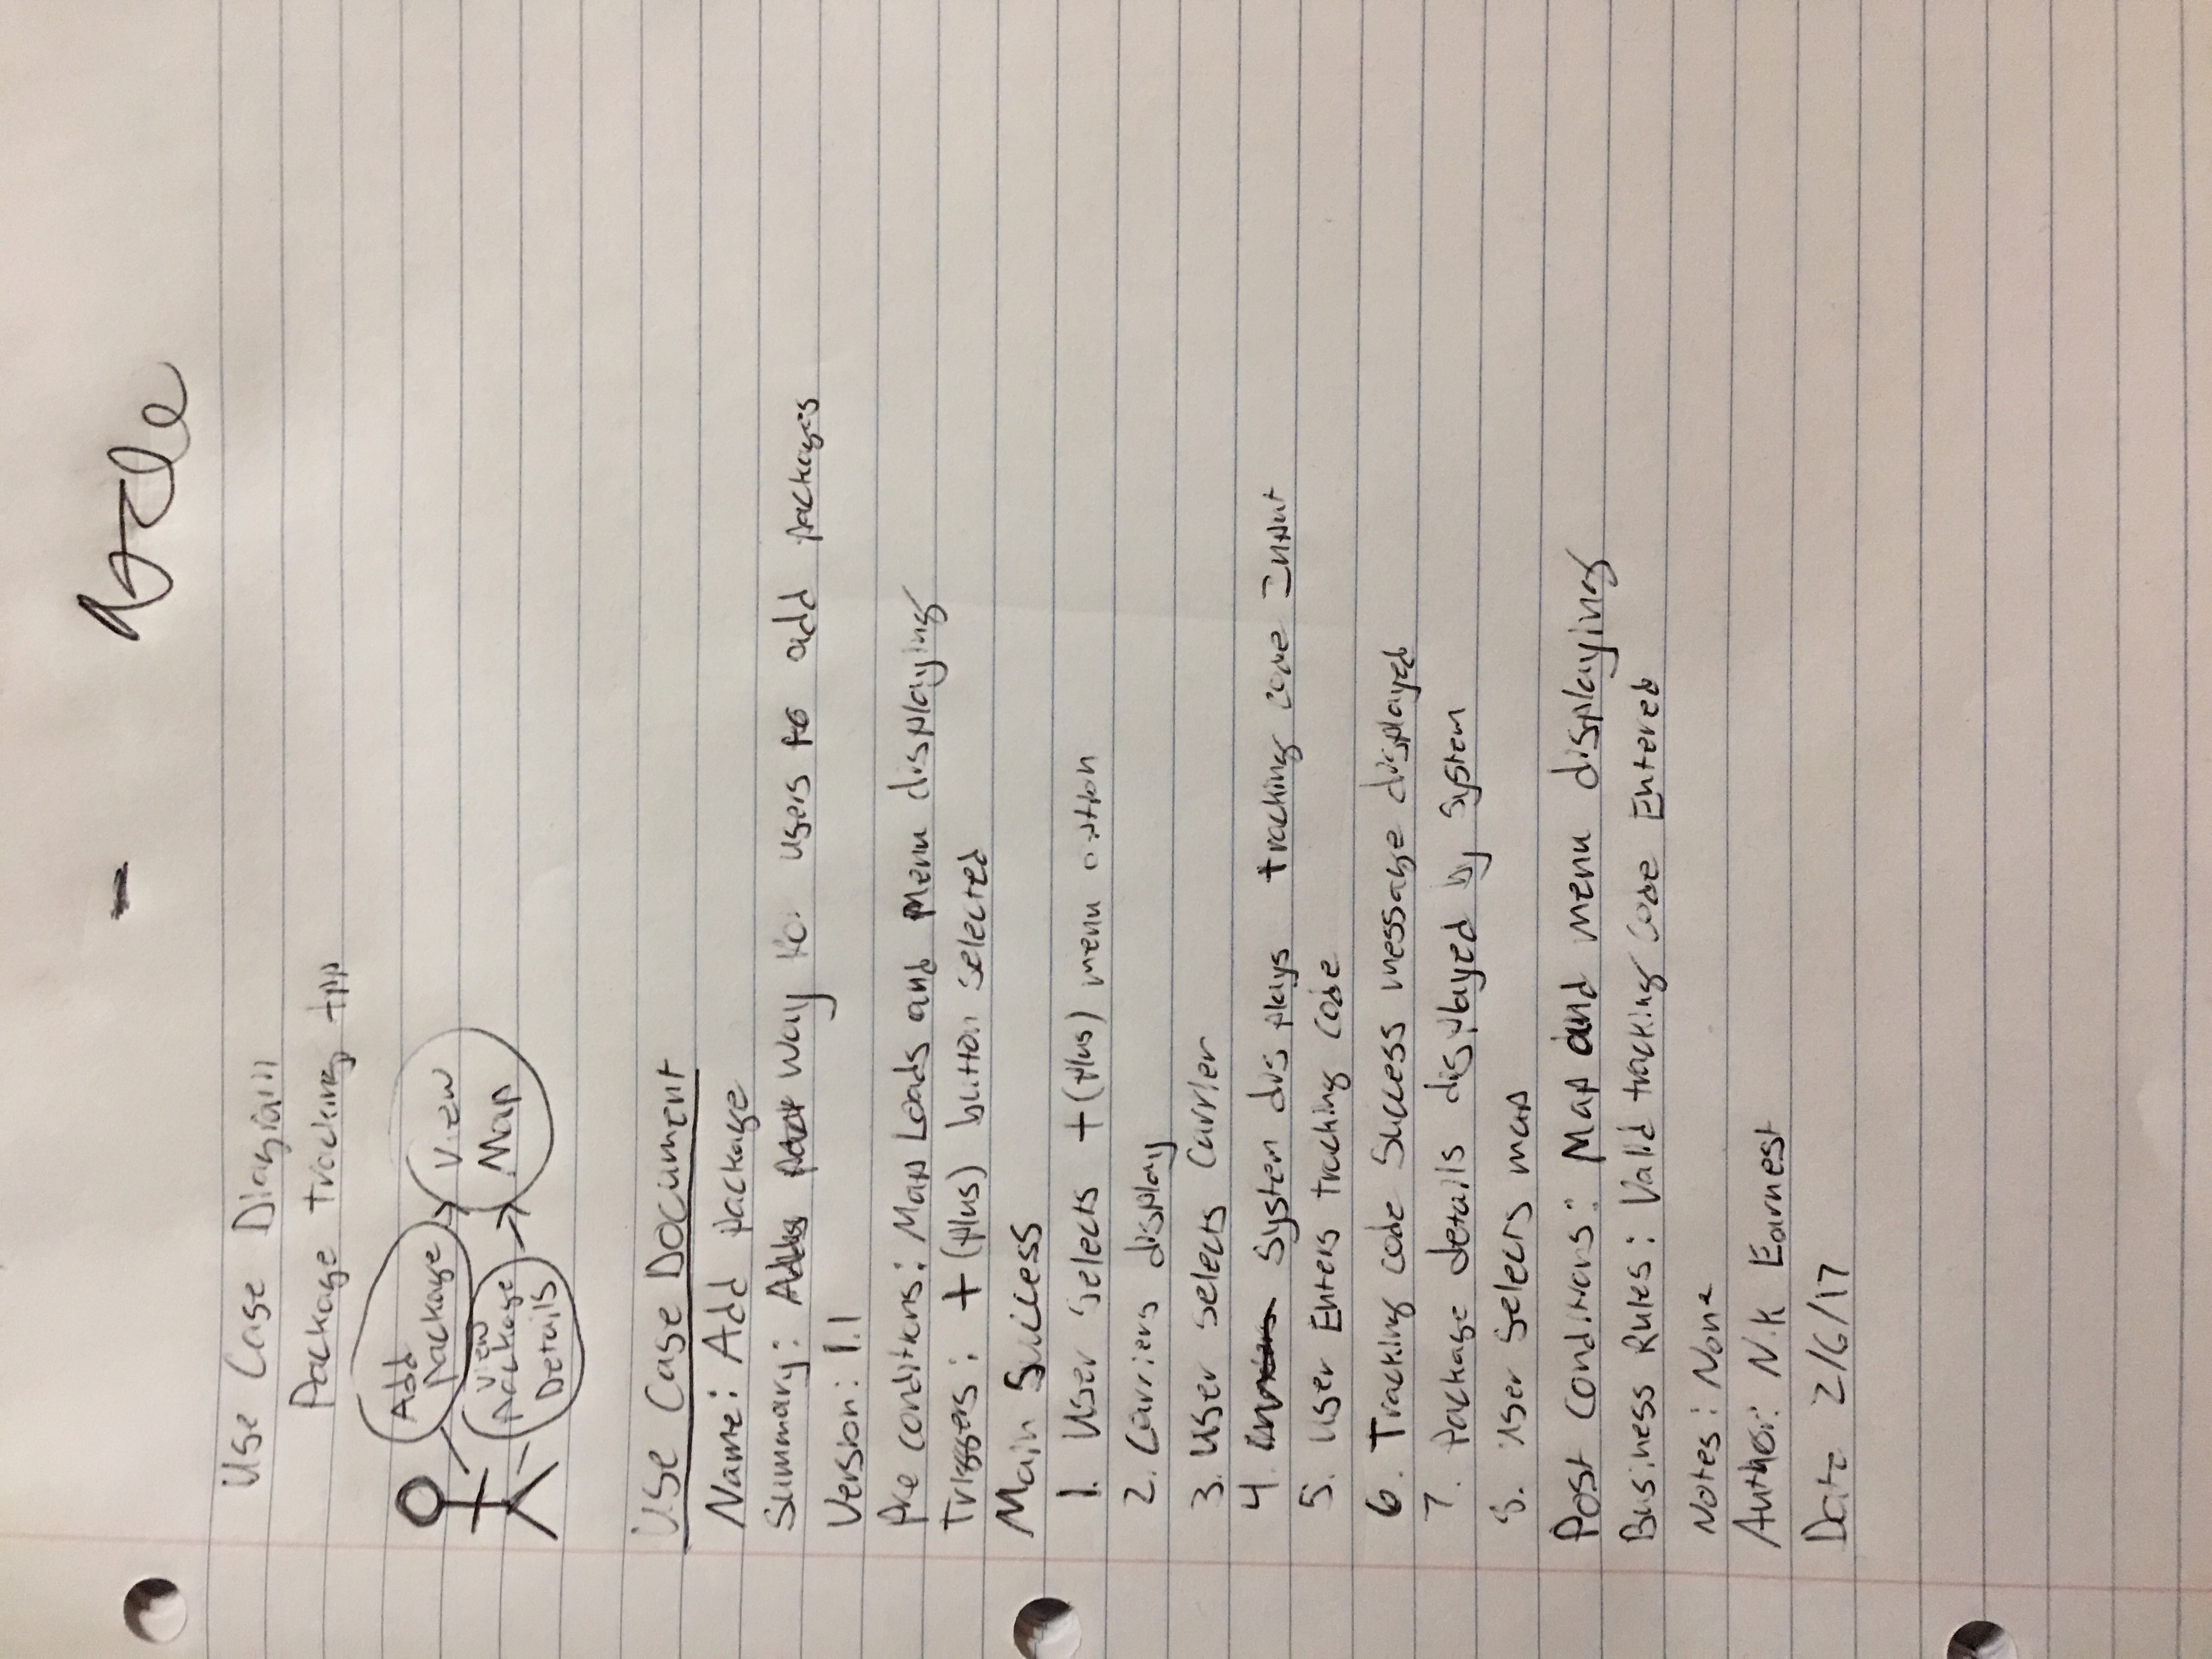 Use Case Diagram
Package tracking App
Add
package
View
Map
View
package
Details
Use Case Document
Name: Add package
Summary: Way for users to add packages
Version: 1.1
Pre conditions: Map Loads and menu displaying
Triggers: + (plus) button selected
Main Success
1. User selects + (plus) menu option
2. Carriers display
3. User selects Carrier
4 System displays tracking code Input
5. User Enters tracking code
6. Tracking code Success message displayed
7. Package details displayed by System
8. User selects map
Post Conditions: Map and menu displaying
Business Rules: Valid tracking Code Entered
Notes: None
Author: N.K Earnest
Date 2/6/17